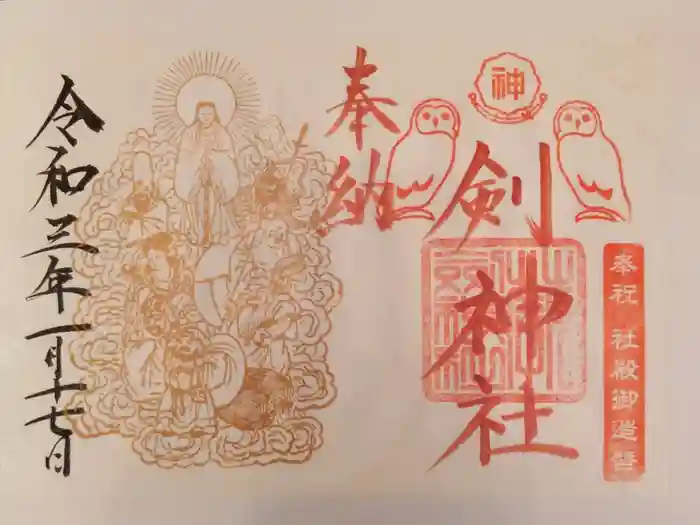 神
奉祝 社殿御造替
剣神社
奉納
令和三年一月十七日